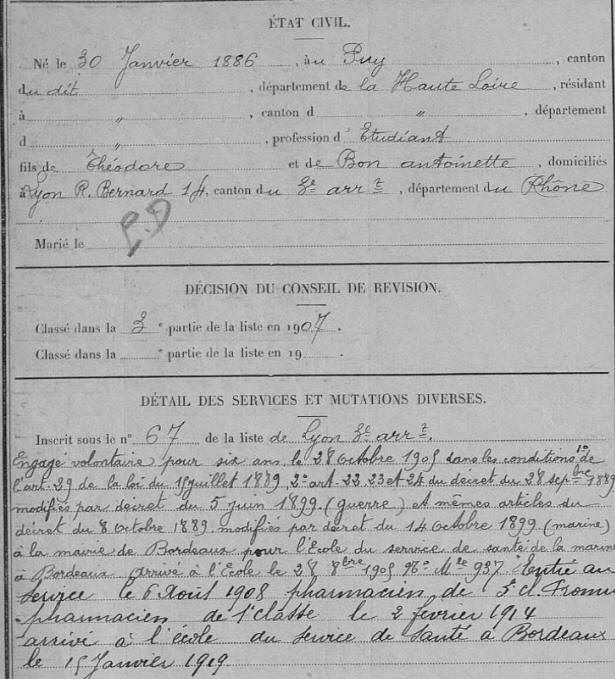 ÉTAT CIVIL.
Né le 30 Janvier 1886, au Puy, canton
du dit, département de la Haute Loire, résidant
à „, canton d „, département
d „, profession d' Etudiant
fils de Théodore et de Bon antoinette, domiciliés
à Lyon R. Bernard 14, canton du 3e arrt, département du Rhône
P.D
Marié le
DÉCISION DU CONSEIL DE REVISION.
Classé dans la 3e partie de la liste en 1907.
Classé dans la e partie de la liste en 19 .
DÉTAIL DES SERVICES ET MUTATIONS DIVERSES.
Inscrit sous le n° 67 de la liste de Lyon 3e arrt.
Engagé volontaire pour six ans le 28 Octobre 1905 dans les conditions 1° de
l'art. 29 de la loi du 15 juillet 1889. 2° art. 22, 23 et 24 du décret du 28 sepbre 1889
modifiés par décret du 5 juin 1899. (guerre) et mêmes articles du
décret du 8 octobre 1889, modifiés par décret du 14 Octobre 1899. (marine)
à la mairie de Bordeaux pour l'Ecole du service de santé de la marine
à Bordeaux arrivé à l'Ecole le 28 8bre 1905 No Mle 937. Entré au
service le 6 Aout 1908 pharmacien de 3e cl. Promu
pharmacien de 1e classe le 2 février 1914
arrivé à l'école du Service de Santé à Bordeaux
le 15 Janvier 1919.